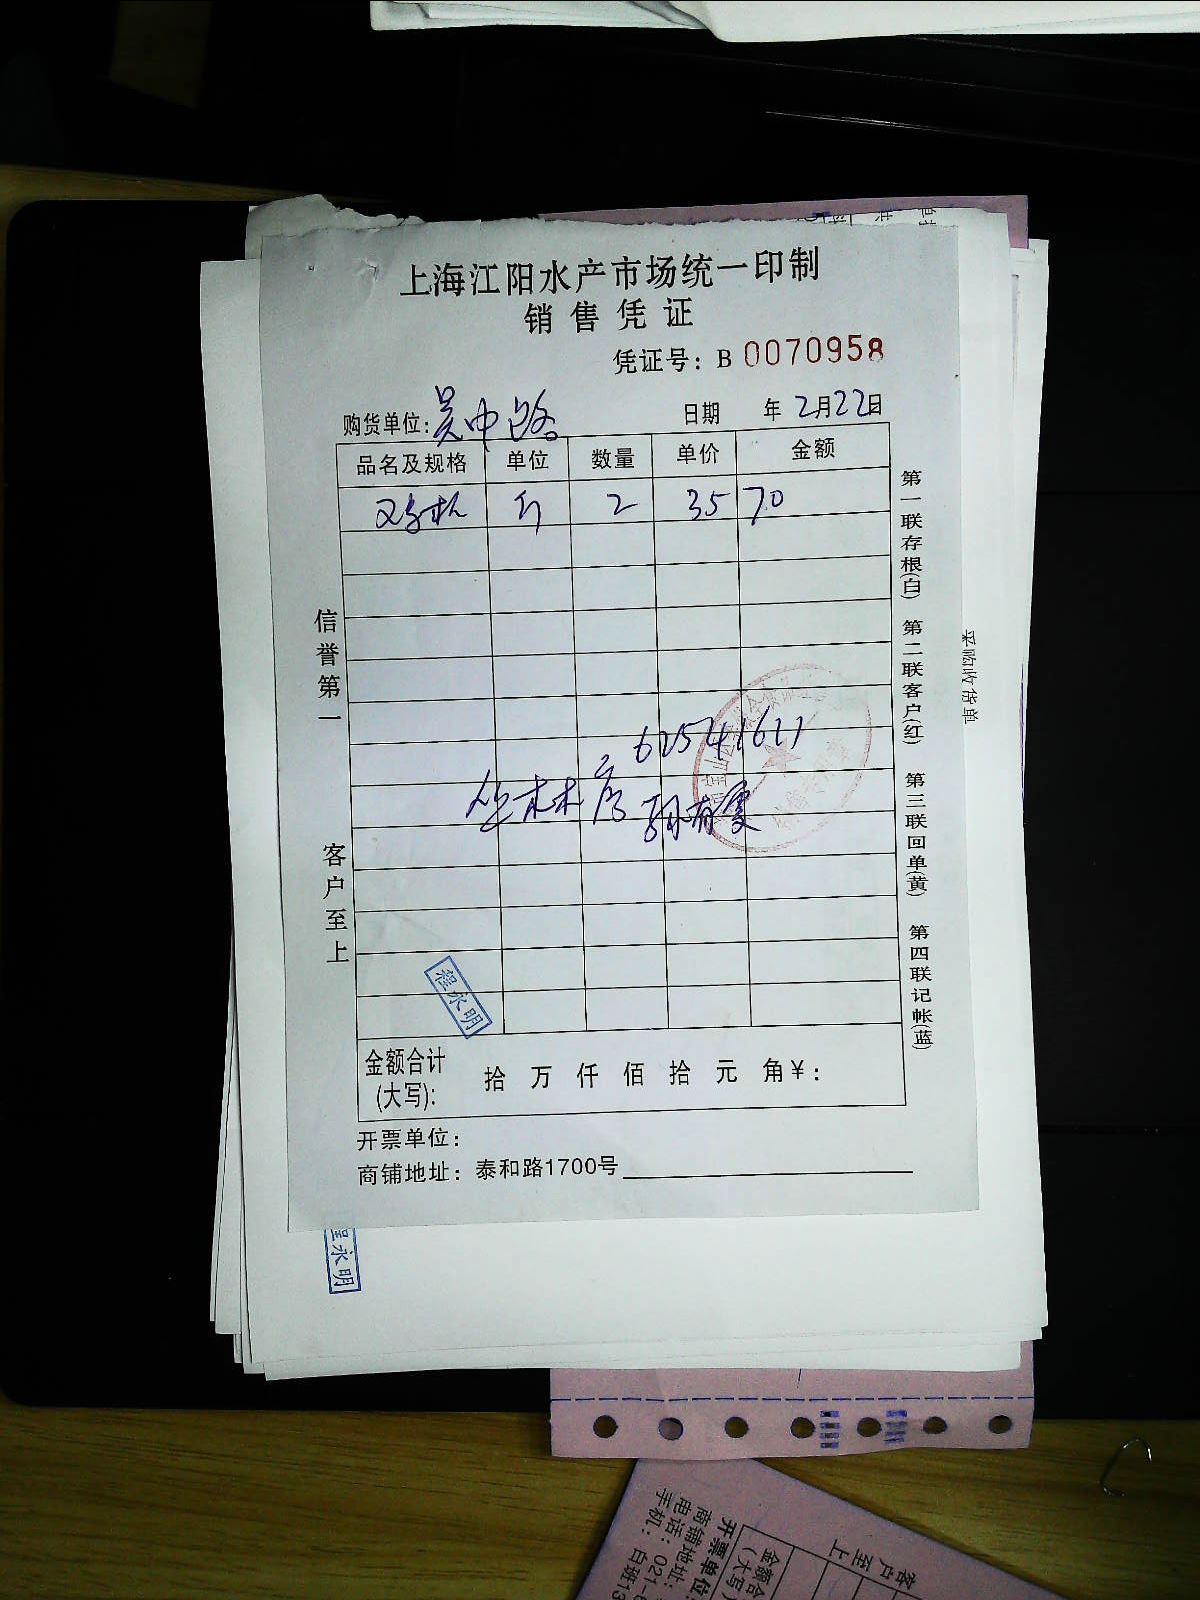 上海江阳水产市场统一印制
销售凭证
凭证号: B 0070958
购货单位: 吴中路 日期 年 2月22日
品名及规格 单位 数量 单价 金额
斤 2 35 70
62541611
丛林店
程永明
金额合计(大写): 拾 万 仟 佰 拾 元 角 ¥:
开票单位:
商铺地址: 泰和路1700号
信誉第一 客户至上
第一联存根(白) 第二联客户(红) 第三联回单(黄) 第四联记帐(蓝)
采购收货单
程永明
客户至上
金额合
(大写)
开票单位:
商铺地址:
电话: 021-6
手机: 白班13